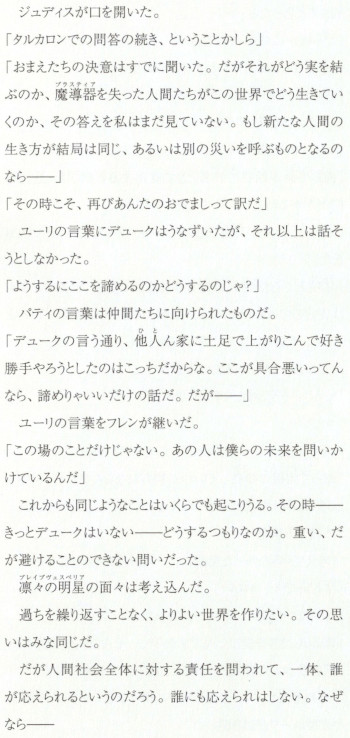 ジュディスが口を開いた。
「タルカロンでの問答の続き、ということかしら」
「おまえたちの決意はすでに聞いた。だがそれがどう実を結
ブラスティア
ぶのか、魔導器を失った人間たちがこの世界でどう生きてい
くのか、その答えを私はまだ見ていない。もし新たな人間の
生き方が結局は同じ、あるいは別の災いを呼ぶものとなるの
なら――」
「その時こそ、再びあんたのおでましって訳だ」
ユーリの言葉にデュークはうなずいたが、それ以上は話そ
うとしなかった。
「ようするにここを諦めるのかどうするのじゃ?」
パティの言葉は仲間たちに向けられたものだ。
ひと
「デュークの言う通り、他人ん家に土足で上がりこんで好き
勝手やろうとしたのはこっちだからな。ここが具合悪いってん
なら、諦めりゃいいだけの話だ。だが――」
ユーリの言葉をフレンが継いだ。
「この場のことだけじゃない。あの人は僕らの未来を問いか
けているんだ」
これからも同じようなことはいくらでも起こりうる。その時――
きっとデュークはいない――どうするつもりなのか。重い、だ
が避けることのできない問いだった。
ブレイブヴェスペリア
凛々の明星の面々は考え込んだ。
過ちを繰り返すことなく、よりよい世界を作りたい。その思
いはみな同じだ。
だが人間社会全体に対する責任を問われて、一体、誰
が応えられるというのだろう。誰にも応えられはしない。なぜ
なら――